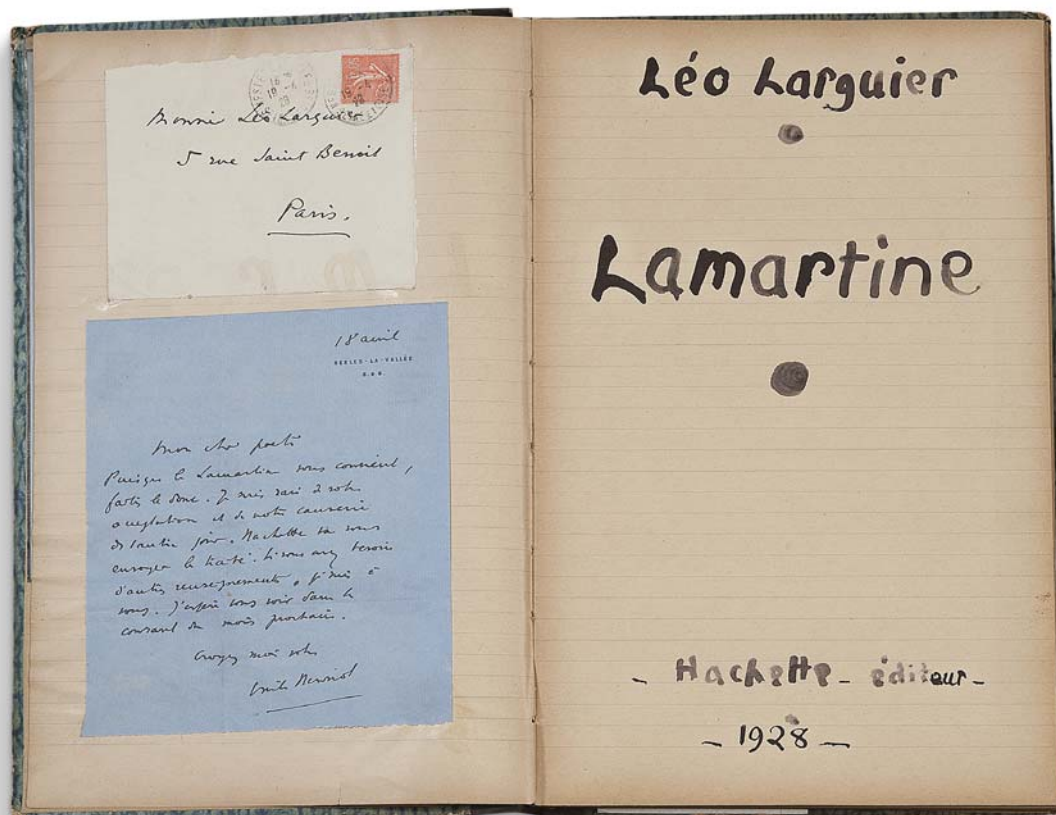 Monsieur Léo Larguier
5 rue Saint Benoit
Paris.
18 avril
NESLES-LA-VALLÉE
S. & O.
Mon cher poète
Puisque le Lamartine vous convient,
faites le donc. Je suis ravi de votre
acceptation et de notre causerie
de l'autre jour. Hachette va vous
envoyer le traité. Si vous avez besoin
d'autres renseignements, je suis à
vous. J'espère vous voir dans le
courant du mois prochain.
Croyez moi votre
Emile Henriot
Léo Larguier
Lamartine
- Hachette - éditeur -
- 1928 -